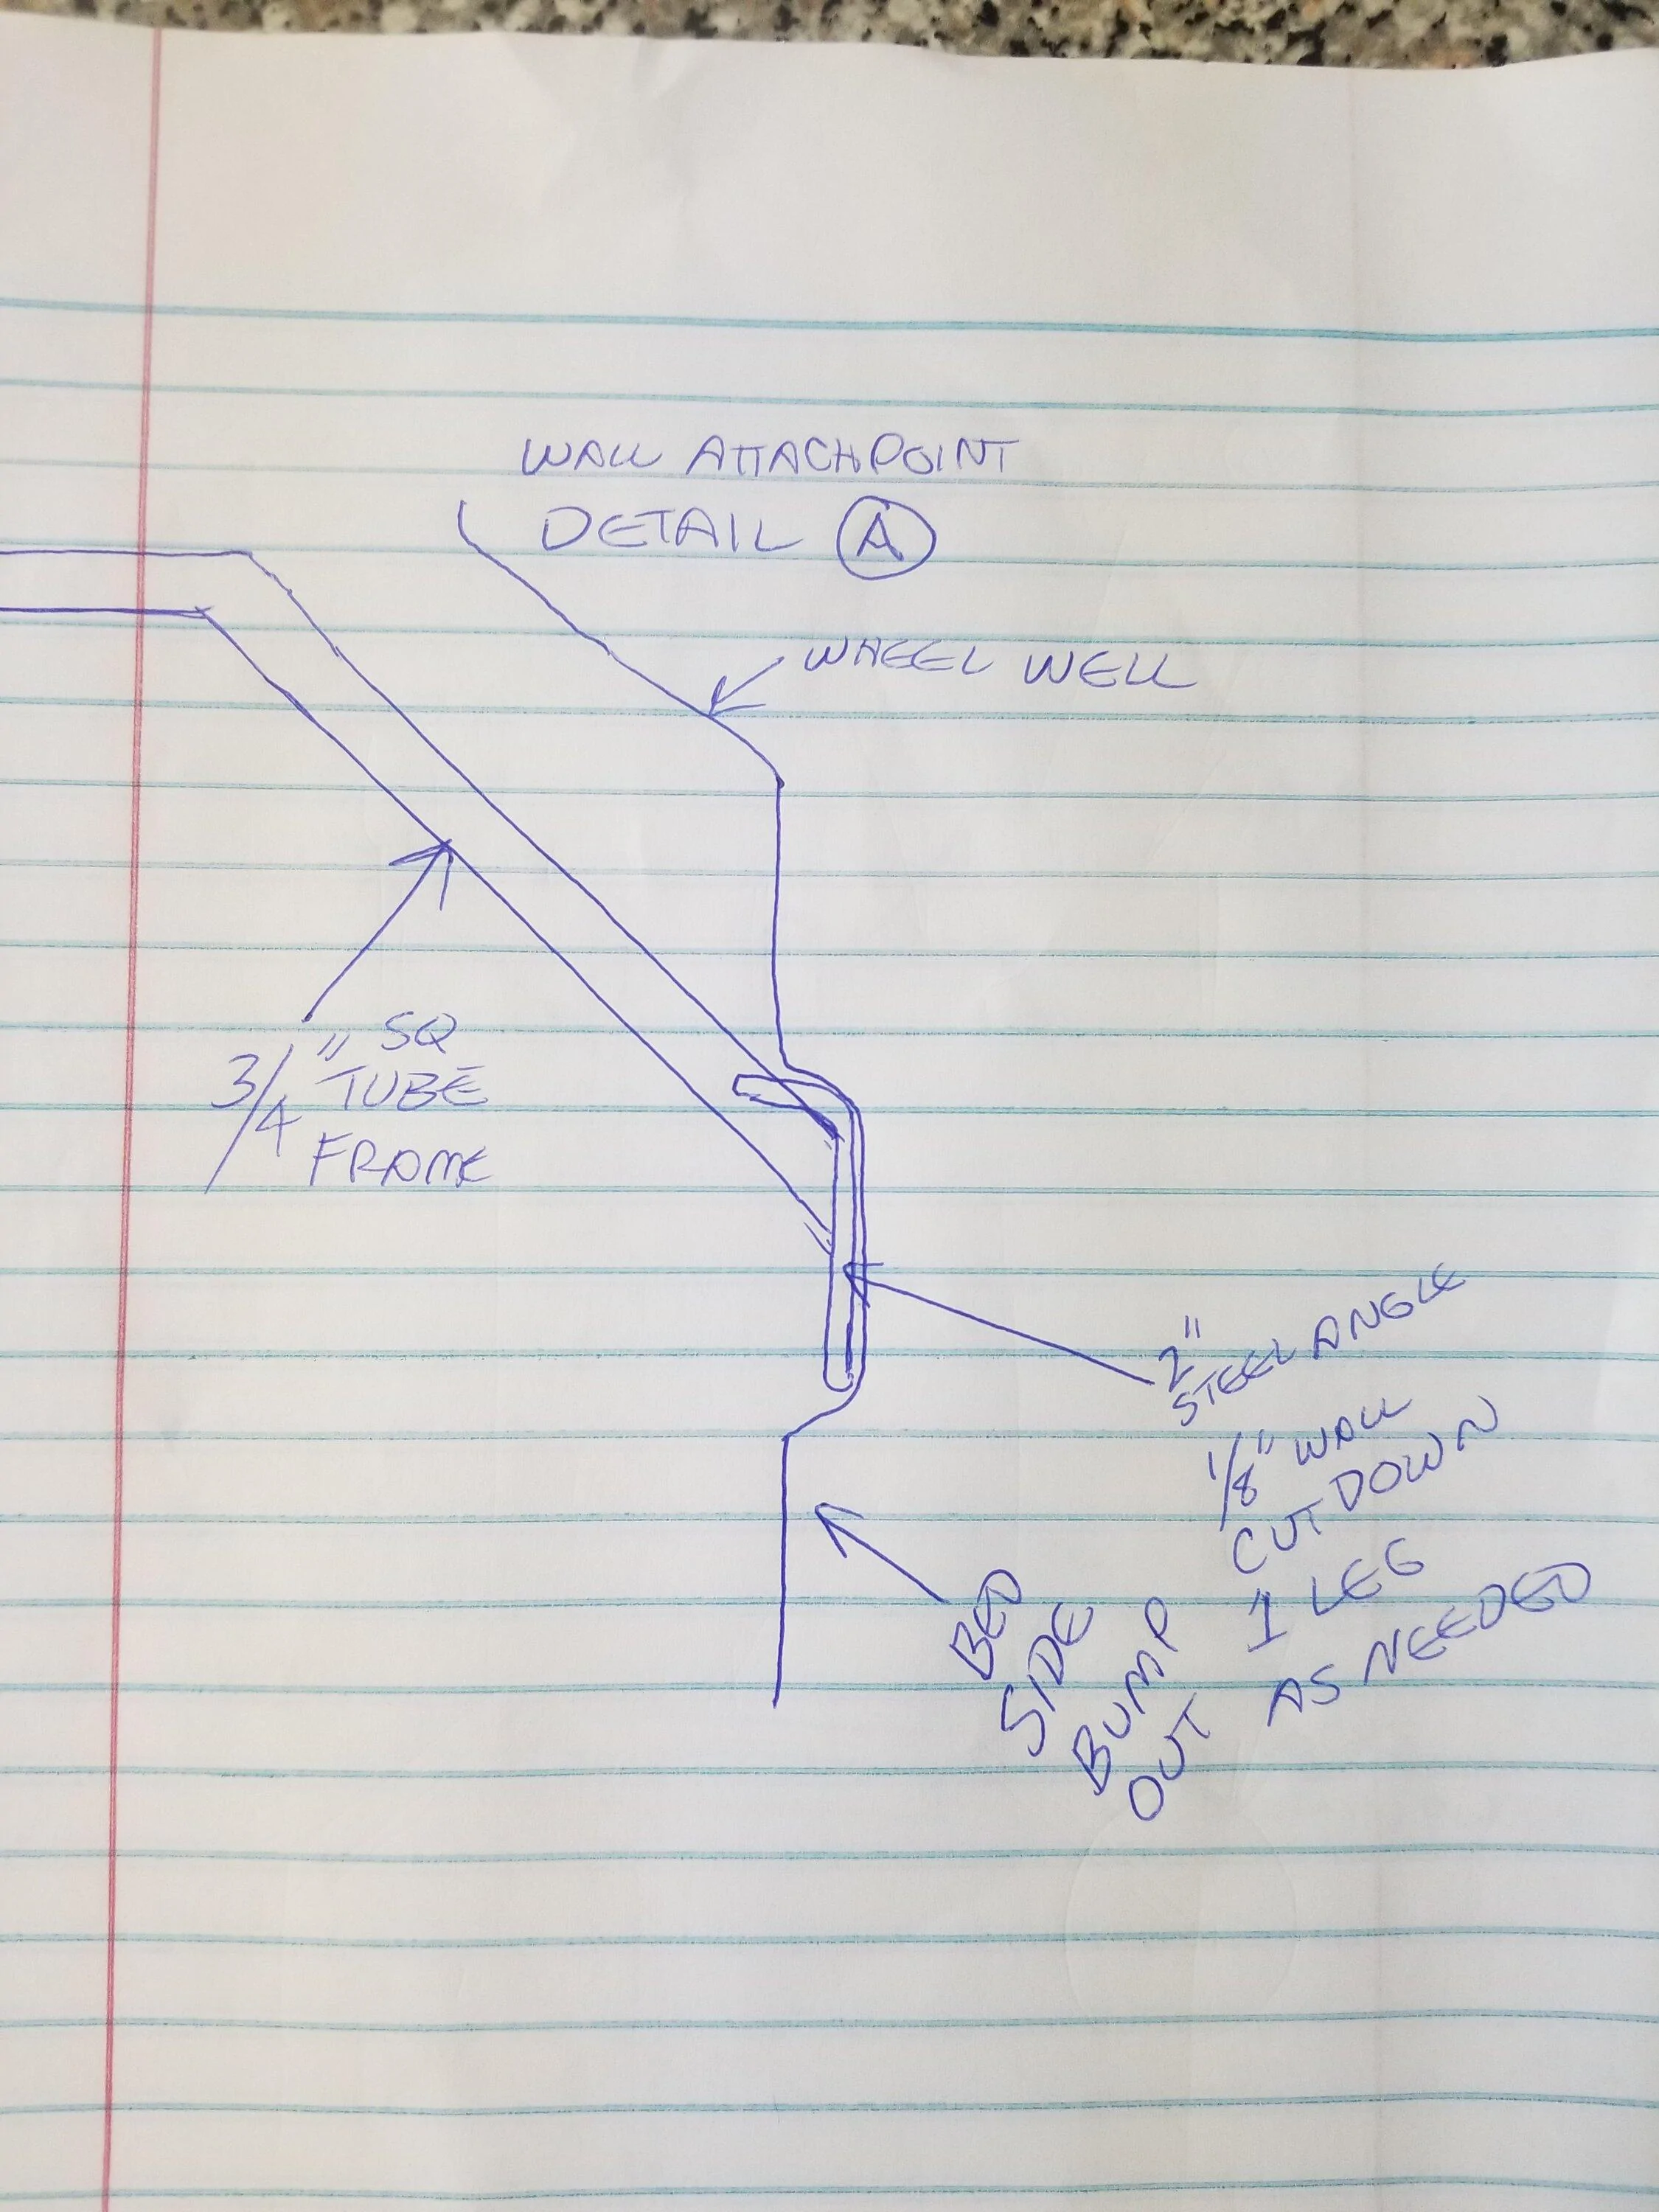 WALL ATTACH POINT
DETAIL A
WHEEL WELL
3/4" SQ
TUBE
FRAME
2"
STEEL ANGLE
1/8" WALL
CUT DOWN
1 LEG
AS NEEDED
BED
SIDE
BUMP
OUT